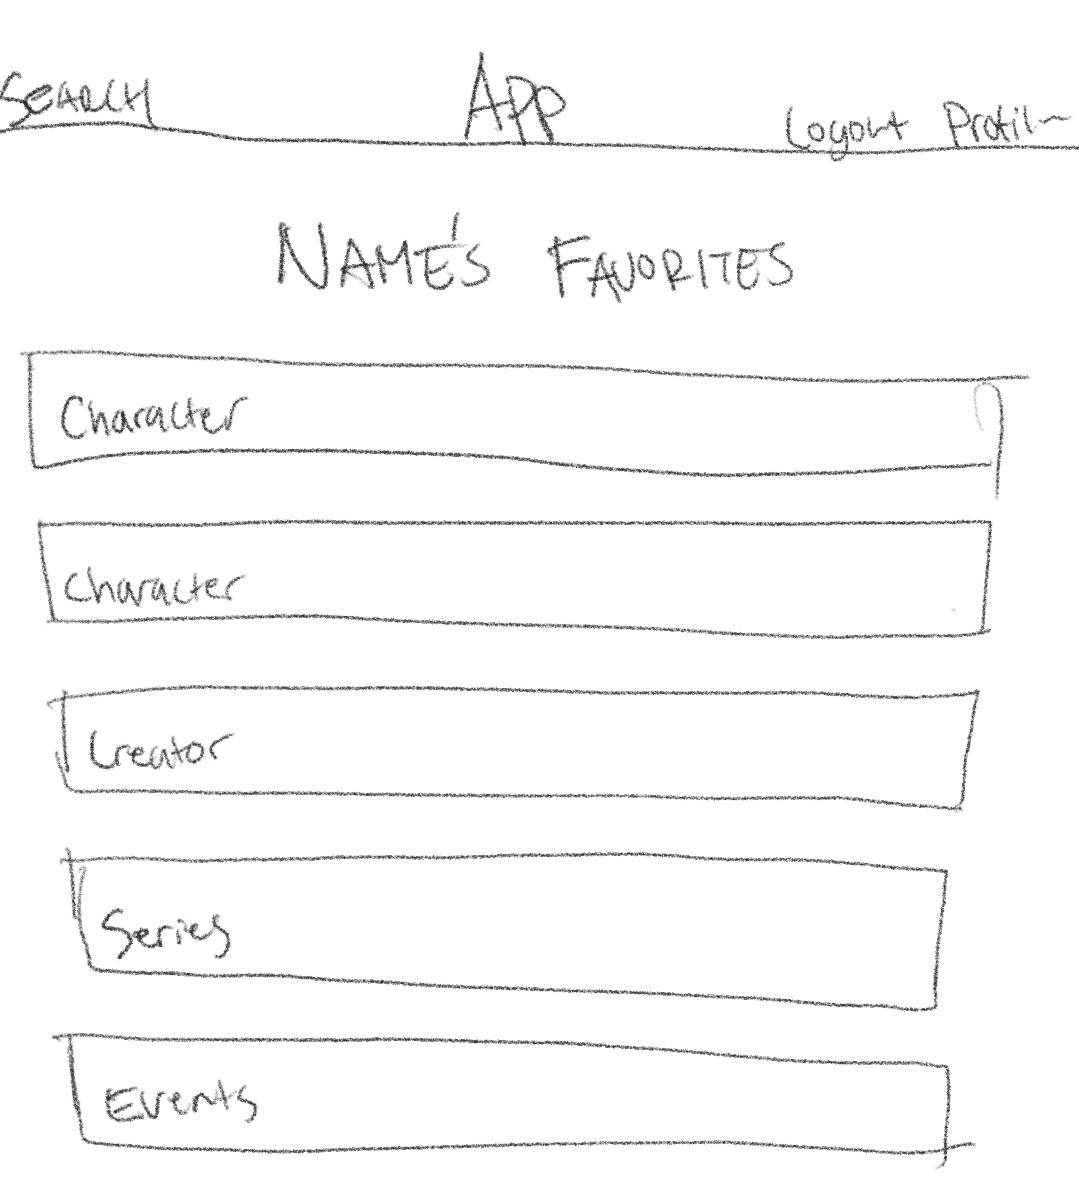 SEARCH APP Logout Profile
NAME'S FAVORITES
Character
Character
Creator
Series
Events